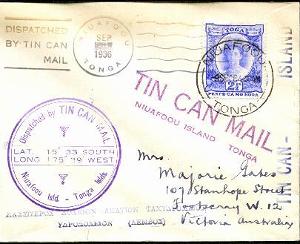 DISPATCHED
BY TIN CAN
MAIL
NIUAFOOU
SEP
1936
TONGA
TOGA
2½D
NIUAFOOU
TONGA
TIN CAN MAIL
NIUAFOOU ISLAND TONGA
TIN CAN ISLAND
Dispatched by TIN CAN MAIL
LAT. 15° 33 SOUTH
LONG 175° 39 WEST
Niuafoou Isld - Tonga Isds.
Mrs.
Marjorie Gates
109 Stanhope Street
W. 12
Victoria Australia